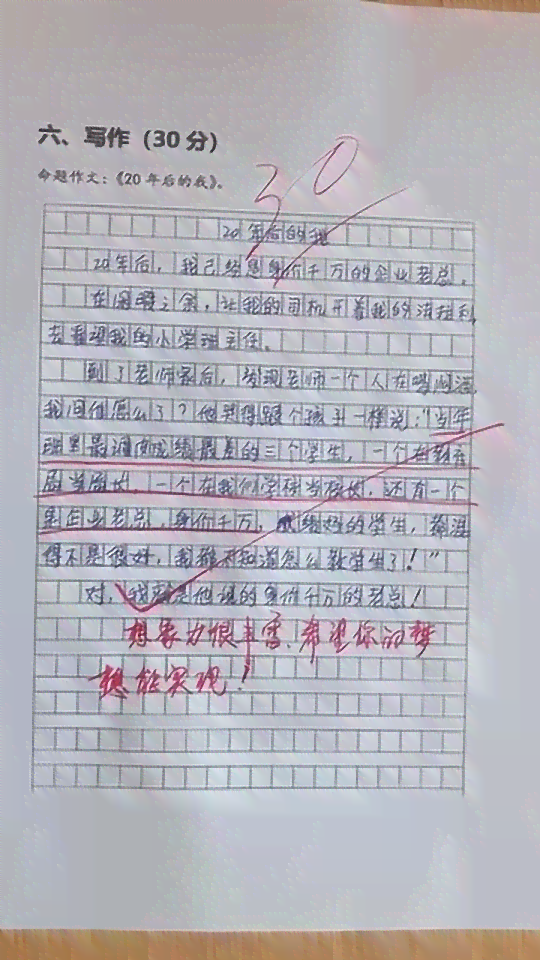 六、写作（30 分）
30
命题作文：《20 年后的我》。
20年后的我
20年后，我已经是身价千万的企业老总。
在闲暇之余，让我的司机开着我的法拉利，
去看望我的小学班主任。
到了老师家后，发现老师一个人在喝闷酒，
我问他怎么了？他哭得跟个孩子一样说："当年
班里最调皮成绩最差的三个学生，一个在教育
局当局长，一个在我们学校当校长，还有一个
是企业老总，身价千万，成绩好的学生，混
得不是很好，我都不知道怎么教学生了！"
对，我就是他说的身价千万的老总！
想象力很丰富、希望你的梦
想能实现！